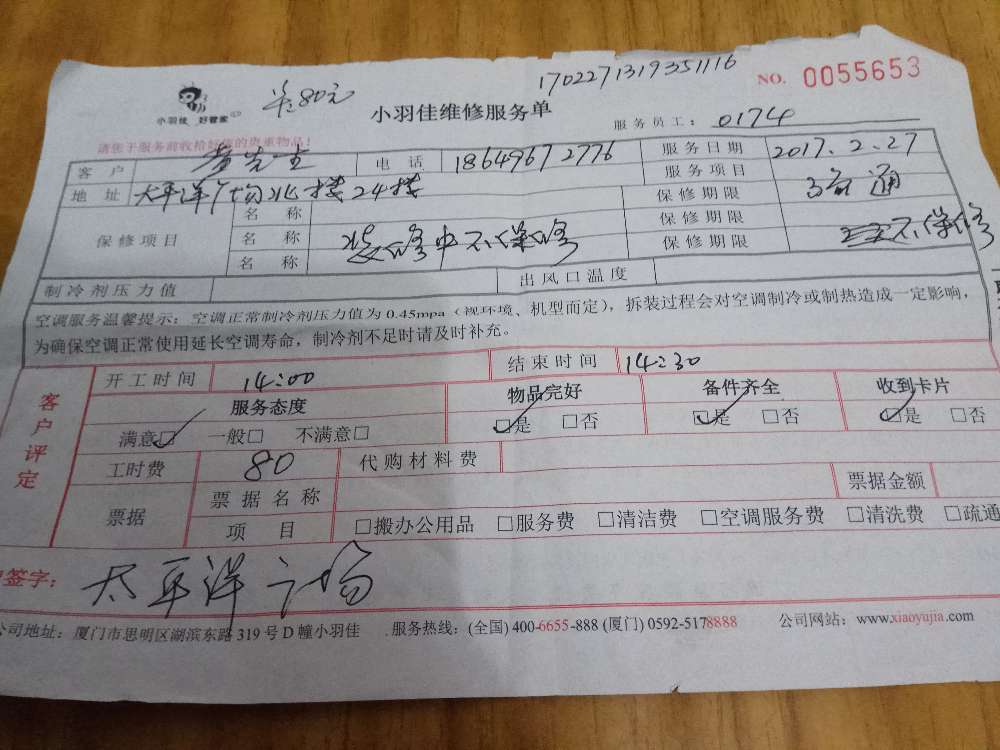 1702271319351116
NO. 0055653
小羽佳 好管家
80元
小羽佳维修服务单
服务员工: 0174
请您于服务前收拾好您的贵重物品!
客户 黄先生 电话 18649672776 服务日期 2017.2.27
地址 太平洋广场北楼24楼 服务项目 疏通
保修项目
名称 保修期限
名称 装修中不保修 保修期限 不保修
名称 保修期限
制冷剂压力值 出风口温度
空调服务温馨提示: 空调正常制冷剂压力值为0.45mpa(视环境、机型而定),拆装过程会对空调制冷或制热造成一定影响,
为确保空调正常使用延长空调寿命,制冷剂不足时请及时补充。
客户评定
开工时间 14:00 结束时间 14:30
服务态度 物品完好 备件齐全 收到卡片
满意☑ 一般□ 不满意□ ☑是 □否 ☑是 □否 ☑是 □否
工时费 80 代购材料费
票据 票据名称 票据金额
项目 □搬办公用品 □服务费 □清洁费 □空调服务费 □清洗费 □疏通
签字: 太平洋广场
公司地址: 厦门市思明区湖滨东路319号D幢小羽佳 服务热线: (全国) 400-6655-888 (厦门) 0592-5178888 公司网站: www.xiaoyujia.com